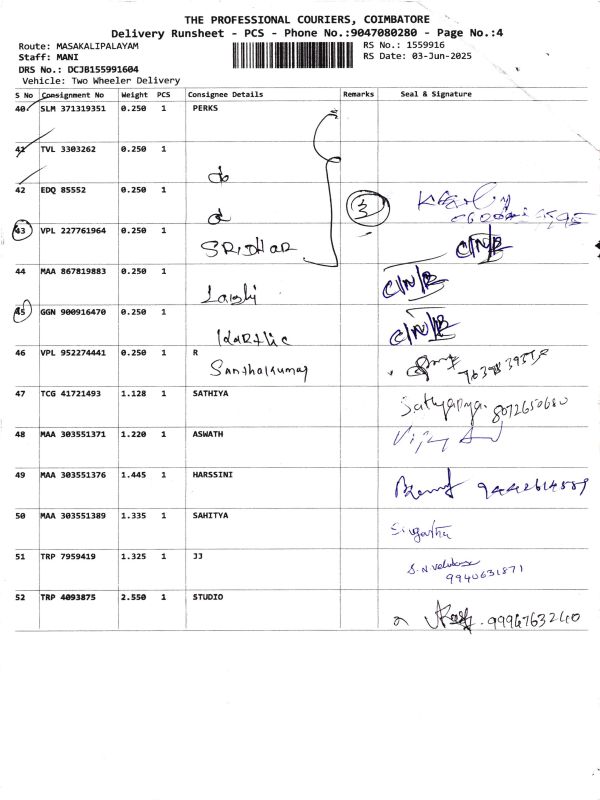 THE PROFESSIONAL COURIERS, COIMBATORE
Delivery Runsheet - PCS - Phone No.:9047080280 - Page No.:4
Route: MASAKALIPALAYAM RS No.: 1559916
Staff: MANI RS Date: 03-Jun-2025
DRS No.: DCJB155991604
Vehicle: Two Wheeler Delivery
S No Consignment No Weight PCS Consignee Details Remarks Seal & Signature
40 SLM 371319351 0.250 1 PERKS
41 TVL 3303262 0.250 1
do
42 EDQ 85552 0.250 1
43 VPL 227761964 0.250 1
SRIDHAR C/N/R
44 MAA 867819883 0.250 1
C/N/R
45 GGN 900916470 0.250 1
Karthic C/N/R
46 VPL 952274441 0.250 1 R
Santhakumar
47 TCG 41721493 1.128 1 SATHIYA
Sathyapriya. 8072650680
48 MAA 303551371 1.220 1 ASWATH
49 MAA 303551376 1.445 1 HARSSINI
9442614589
50 MAA 303551389 1.335 1 SAHITYA
51 TRP 7959419 1.325 1 JJ
9940631871
52 TRP 4093875 2.550 1 STUDIO
9996763240